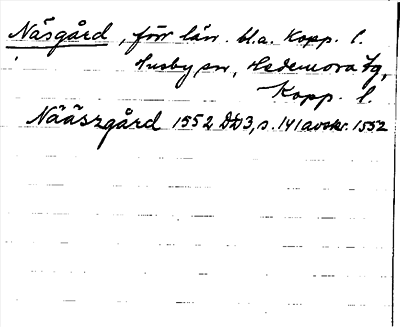 Näsgård, förr län. bl.a. Kopp. l.
Husby sn, Hedemora tg,
Kopp. l.
Nääszgård 1552 DD3, s. 141 avskr. 1552